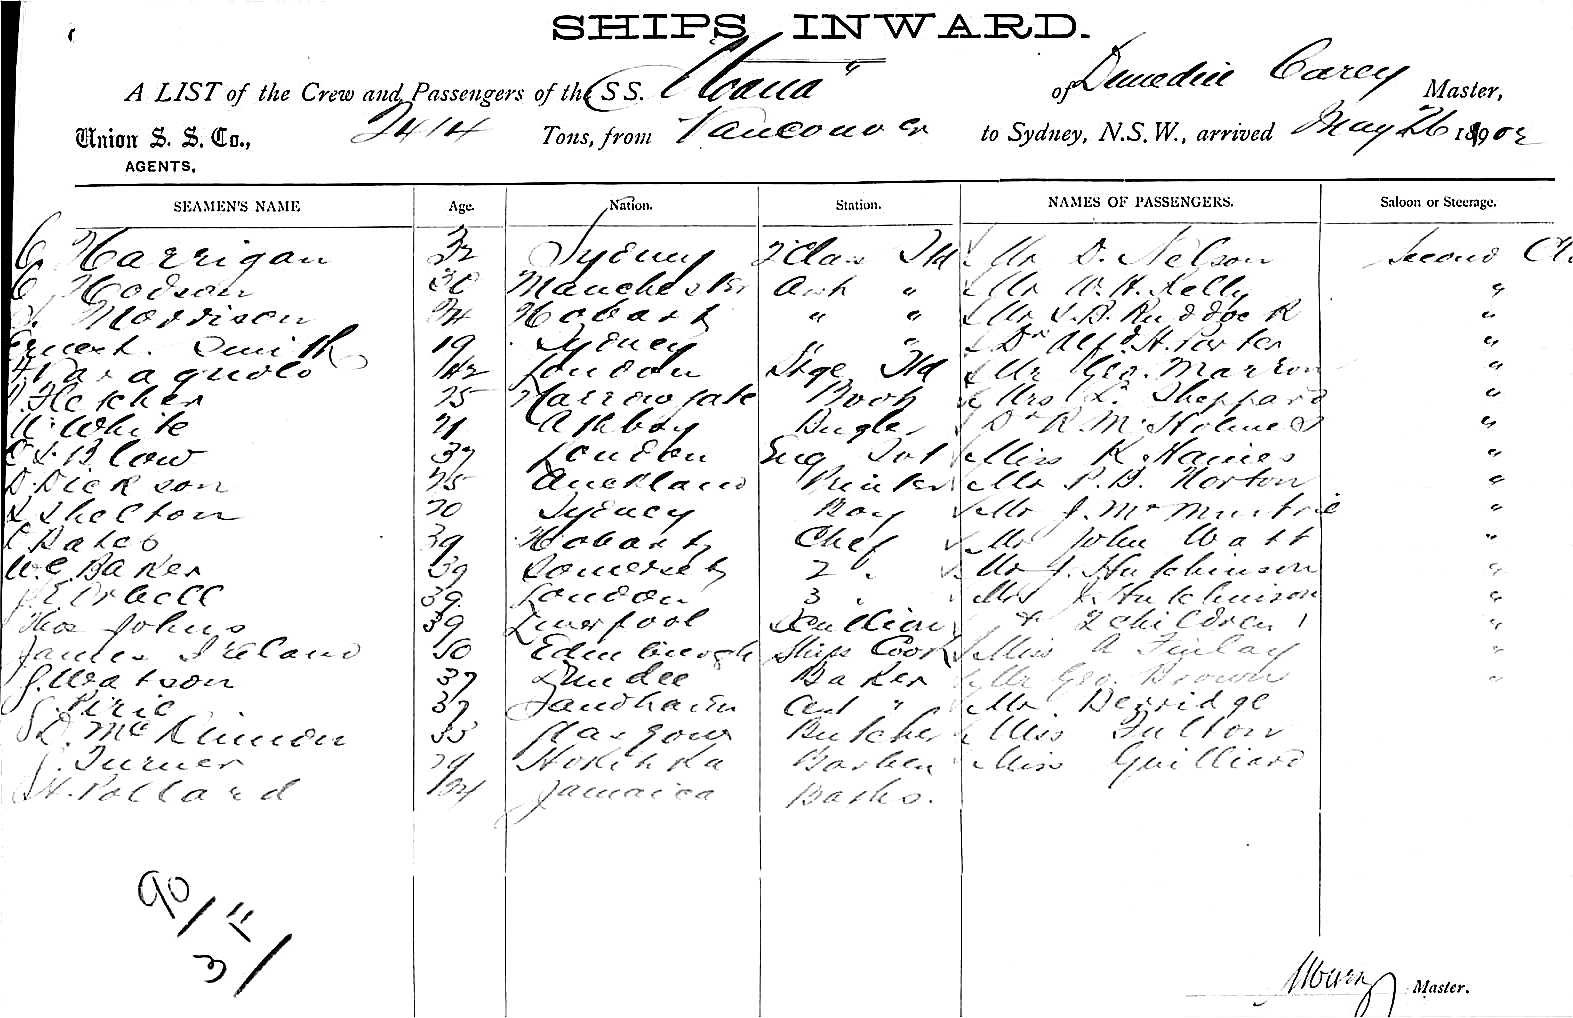 SHIPS INWARD.
A LIST of the Crew and Passengers of the SS. "Moana" of Dunedin Carey Master,
Union S. S. Co., 2414 Tons, from Vancouver to Sydney, N.S.W., arrived May 26 1902
AGENTS,
SEAMEN'S NAME Age. Nation. Station. NAMES OF PASSENGERS. Saloon or Steerage.
C Harrigan 32 Sydney 2 Class Std Mr D. Nelson Second
C Hodson 30 Manchester Asst " Mr W. H. Kelly "
Morrison 24 Hobart " " Mr S. A. Ruddock "
Ernest Smith 19 Sydney " " Dr Alfd H. Porter "
42 London Stge Std Mr Geo. Marron "
Fletcher 25 Harrowgate Book Mrs L. Sheppard "
W. White 21 Ashboy Bugler Dr R. Mc Holmes "
C S. Blow 37 London Eng Miss K Haines "
D. Dickson 25 Auckland Printer Mr P. B. Norton "
L Shelton 20 Sydney Boy Mr J. Mc Murtrie "
Bates 39 Hobart Chef Mr John Watt "
W. G. Baker 39 Somerset 2 " Mr J. Hutchinson "
J. E. Orbell 39 London 3 " Mrs J. Hutchinson "
Thos Johns 39 Liverpool Scullion & 2 children "
James Ireland 50 Edinburgh Ships Cook Miss A Finlay "
J. Watson 37 Dundee Baker Mr Geo. Brown "
Pirie 37 Sandhaven Asst " Mr Derridge
D. McKinnon 35 Glasgow Butcher Miss Fulton
J. Turner 29 Hokitika Barber Miss Guilliard
H. Pollard 24 Jamaica Baths.
90/11
3/
Master.